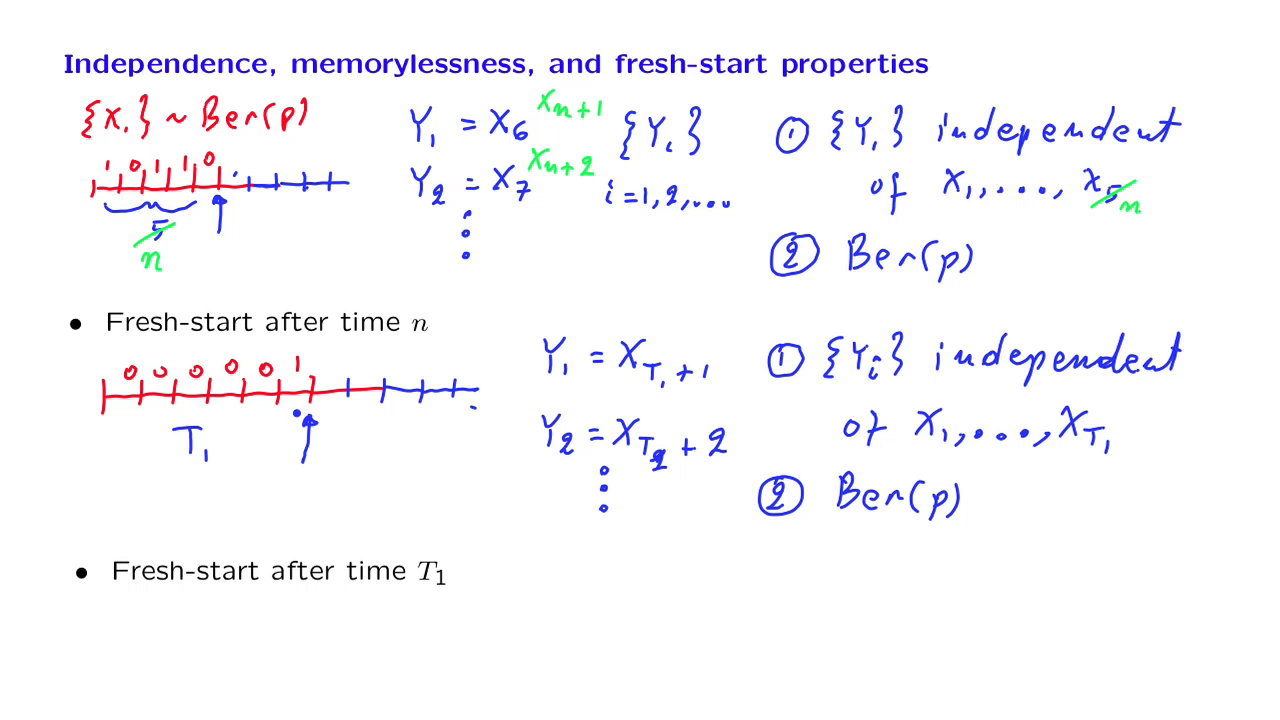 Independence, memorylessness, and fresh-start properties
{X.} ~ Ber(p)
1 0 1 1 0
5
n
Y₁ = X₆ Xₙ₊₁
Y₂ = X₇ Xₙ₊₂
⋮
{Yᵢ}
i = 1, 2, ...
① {Yᵢ} independent
of X₁, ..., X₅ n
② Ber(p)
• Fresh-start after time n
0 0 0 0 0 1
T₁
Y₁ = X_{T₁ + 1}
Y₂ = X_{T₂ + 2}
⋮
① {Yᵢ} independent
of X₁, ..., X_{T₁}
② Ber(p)
• Fresh-start after time T₁